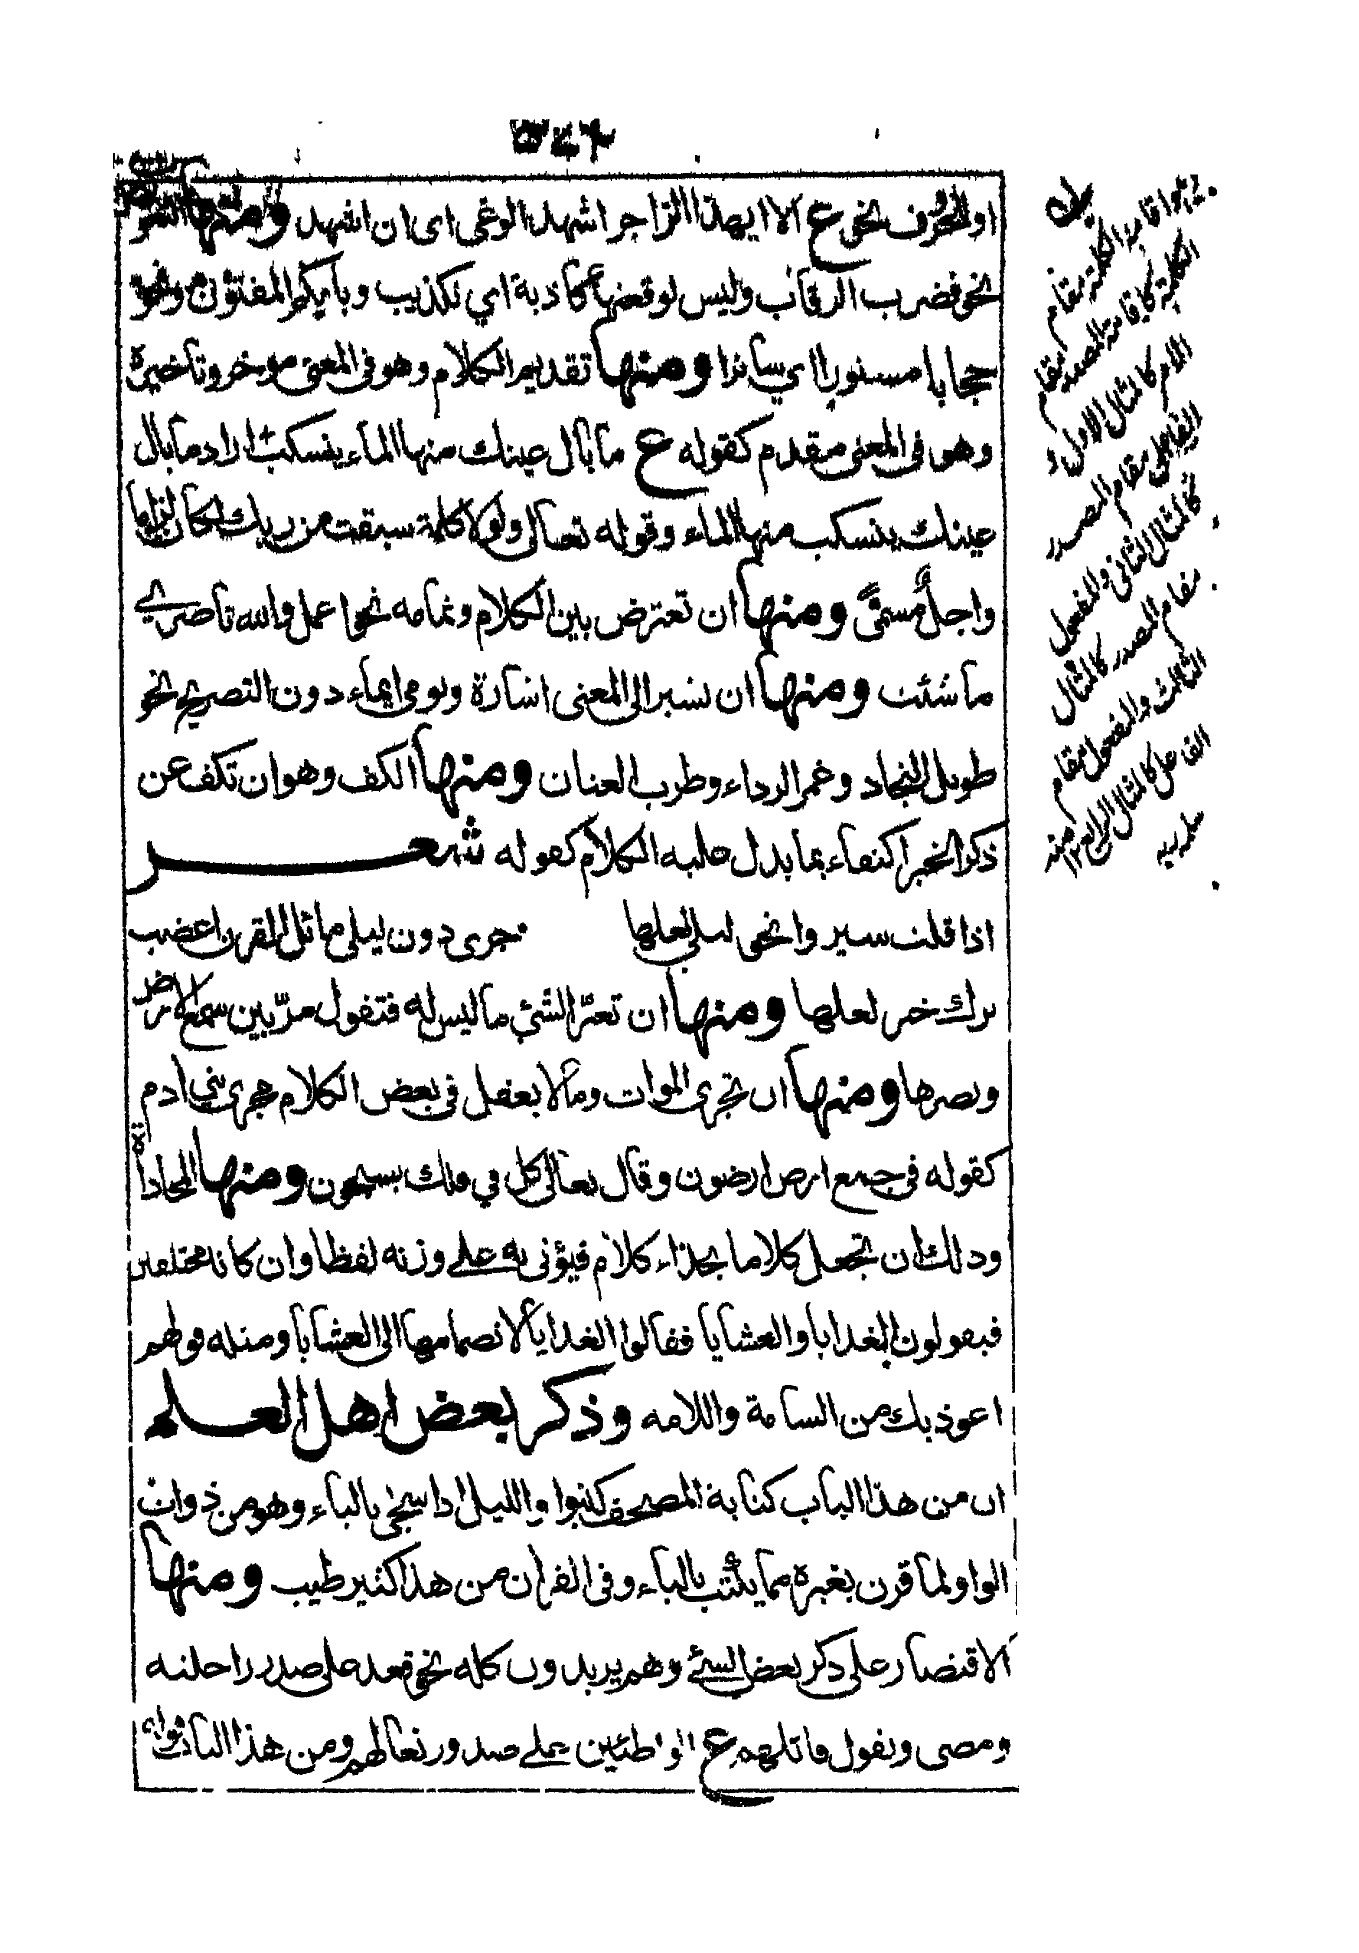 او الحروف نحو ع الا ايهذا الزاجر اشهد الوغى اى ان اشهد ومنها
نحو فضرب الرقاب وليس لوقعتها كاذبة اي تكذيب وبايكم المفتون ونحو
حجابا مستورا اي ساترا ومنها تقديم الكلام وهو فى المعنى موخر وتاخيره
وهو فى المعنى مقدم كقوله ع ما بال عينك منها الماء ينسكب اراد ما بال
عينك ينسكب منها الماء وقوله تعالى ولولا كلمة سبقت من ربك لكان لزاما
واجل مسمّى ومنها ان تعترض بين الكلام وتمامه نحو اعمل والله ناصري
ما شئت ومنها ان تشير الى المعنى اشارة وتومى ايماء دون التصريح نحو
طويل النجاد وغمر الرداء وطرب العنان ومنها الكف وهو ان تكف عن
ذكر الخبر اكتفاء بما يدل عليه الكلام كقوله شعر
اذا قلت سيروا نحو ليلى لعلها جرى دون ليلى مائل القرن اعضب
ترك خبر لعلها ومنها ان تعير الشئ ما ليس له فتقول مر بين سمع الارض
وبصرها ومنها ان تجرى الموات وما لا يعقل فى بعض الكلام مجرى بني ادم
كقوله فى جمع ارض ارضون وقال تعالى كل في فلك يسبحون ومنها المحاذاة
وذلك ان تجعل كلاما بحذاء كلام فيؤتى به على وزنه لفظا وان كانا مختلفين
فيقولون الغدايا والعشايا فقالوا الغدايا لانضمامها الى العشايا ومثله قولهم
اعوذ بك من السامة واللامه وذكر بعض اهل العلم
ان من هذا الباب كتابة المصحف كتبوا والليل اذا سجى بالياء وهو من ذوات
الواو لما قرن بغيره مما يكتب بالياء وفى القران من هذا كثير طيب ومنها
الاقتصار على ذكر بعض الشئ وهم يريدون كله نحو قعد على صدر راحلته
ومضى ويقول قائلهم ع الواطئين على صدور نعالهم ومن هذا الباب
الكلمة كاقامة المصدر مقام
الامر كالمثال الاول و
الفاعل مقام المصدر
كالمثال الثانى والمفعول
مقام المصدر كالمثال
الثالث والمفعول مقام
الفاعل كالمثال الرابع ١٢ منه